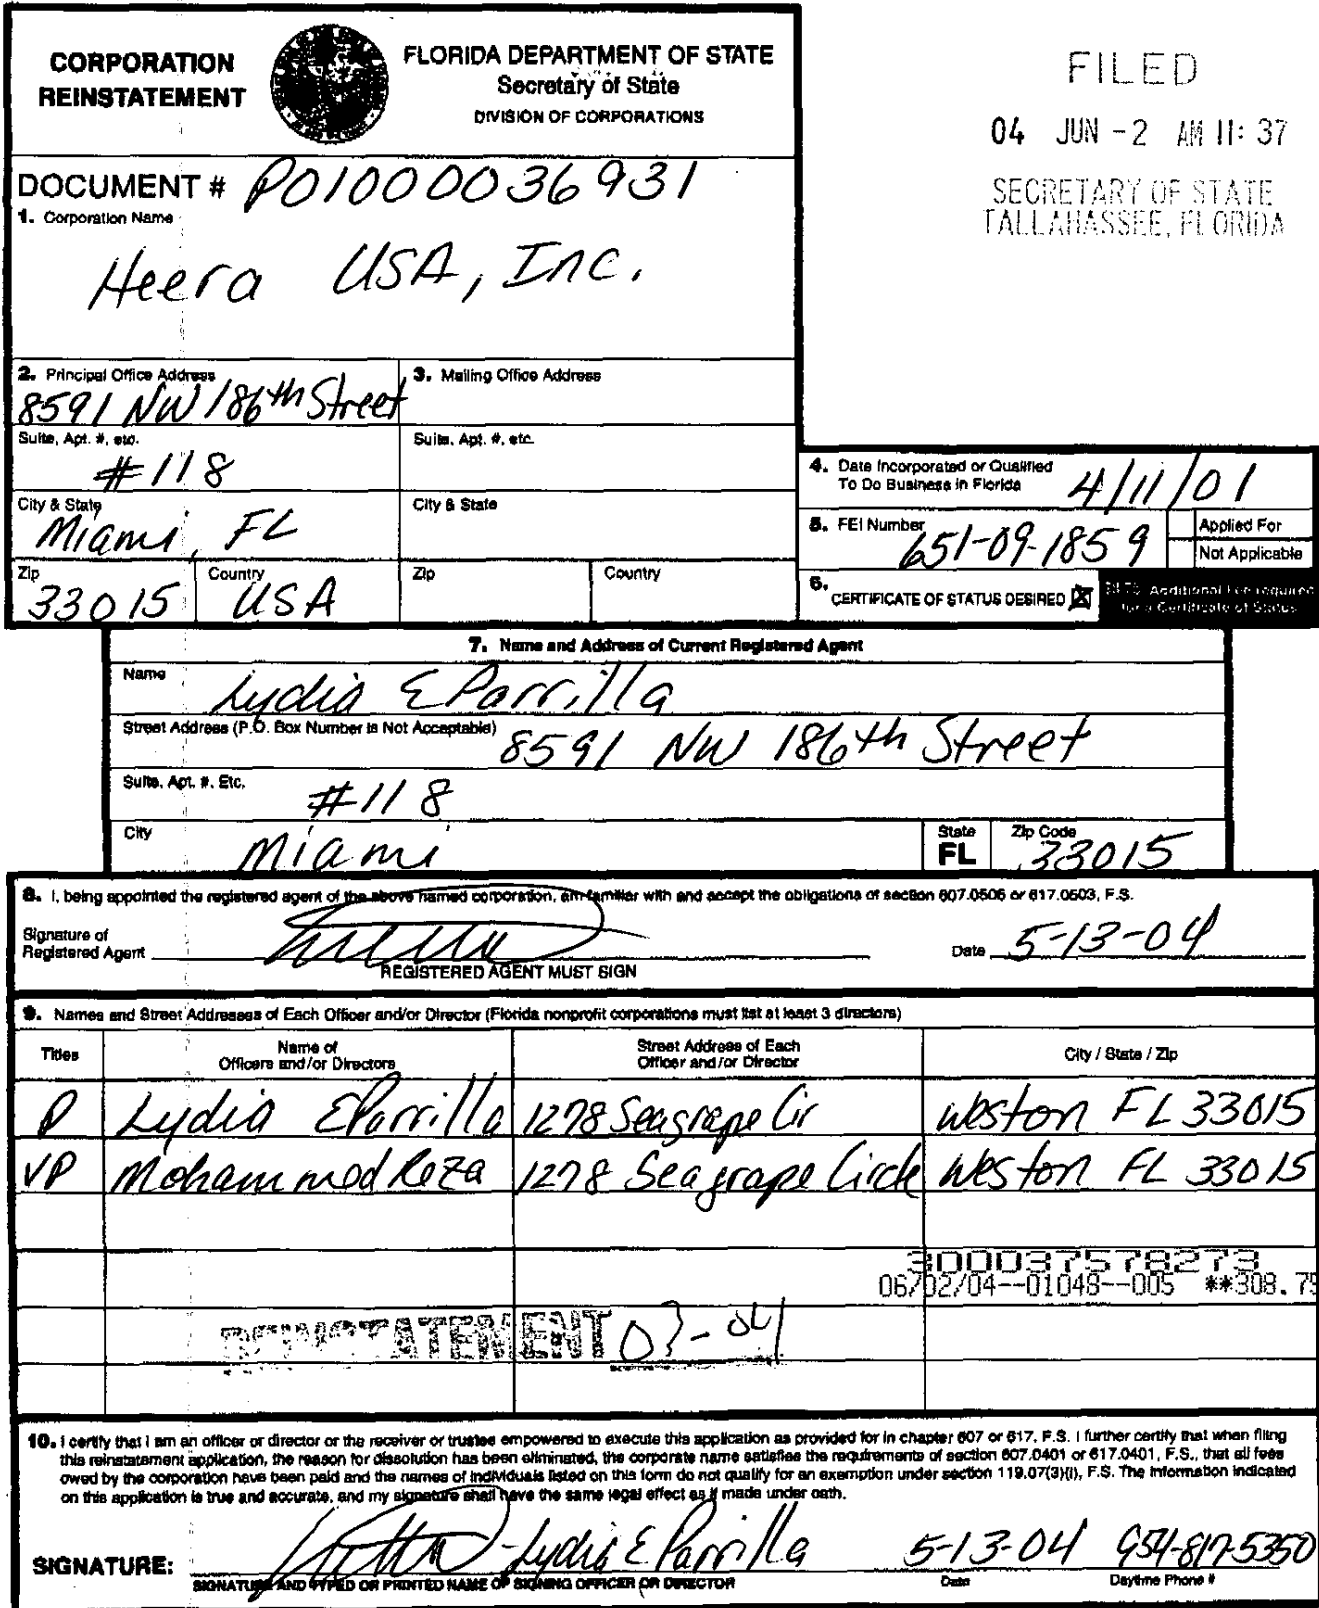 CORPORATION
REINSTATEMENT
FLORIDA DEPARTMENT OF STATE
Secretary of State
DIVISION OF CORPORATIONS
FILED
04 JUN -2 AM 11: 37
SECRETARY OF STATE
TALLAHASSEE, FLORIDA
DOCUMENT # P01000036931
1. Corporation Name
Heera USA, Inc.
2. Principal Office Address
8591 NW 186th Street
3. Mailing Office Address
Suite, Apt. #, etc.
#118
Suite, Apt. #, etc.
City & State
Miami, FL
City & State
Zip
33015
Country
USA
Zip
Country
4. Date Incorporated or Qualified
To Do Business in Florida
4/11/01
5. FEI Number
651-09-1859
Applied For
Not Applicable
6. CERTIFICATE OF STATUS DESIRED
Additional Fee required
for a Certificate of Status
7. Name and Address of Current Registered Agent
Name
Lydia E Parrilla
Street Address (P.O. Box Number is Not Acceptable)
8591 NW 186th Street
Suite, Apt. #, Etc.
#118
City
Miami
State
FL
Zip Code
33015
8. I, being appointed the registered agent of the above named corporation, am familiar with and accept the obligations of section 607.0505 or 617.0503, F.S.
Signature of
Registered Agent
REGISTERED AGENT MUST SIGN
Date 5-13-04
9. Names and Street Addresses of Each Officer and/or Director (Florida nonprofit corporations must list at least 3 directors)
Titles
Name of
Officers and/or Directors
Street Address of Each
Officer and/or Director
City / State / Zip
P Lydia E Parrilla 1278 Seagrape Cir Weston FL 33015
VP Mohammed Reza 1278 Seagrape Circle Weston FL 33015
300037578273
06/02/04--01048--005 **308.75
REINSTATEMENT 03-04
10. I certify that I am an officer or director or the receiver or trustee empowered to execute this application as provided for in chapter 607 or 617, F.S. I further certify that when filing
this reinstatement application, the reason for dissolution has been eliminated, the corporate name satisfies the requirements of section 607.0401 or 617.0401, F.S., that all fees
owed by the corporation have been paid and the names of individuals listed on this form do not qualify for an exemption under section 119.07(3)(i), F.S. The information indicated
on this application is true and accurate, and my signature shall have the same legal effect as if made under oath.
SIGNATURE:
Lydia E Parrilla 5-13-04 954-817-5350
SIGNATURE AND TYPED OR PRINTED NAME OF SIGNING OFFICER OR DIRECTOR
Date
Daytime Phone #